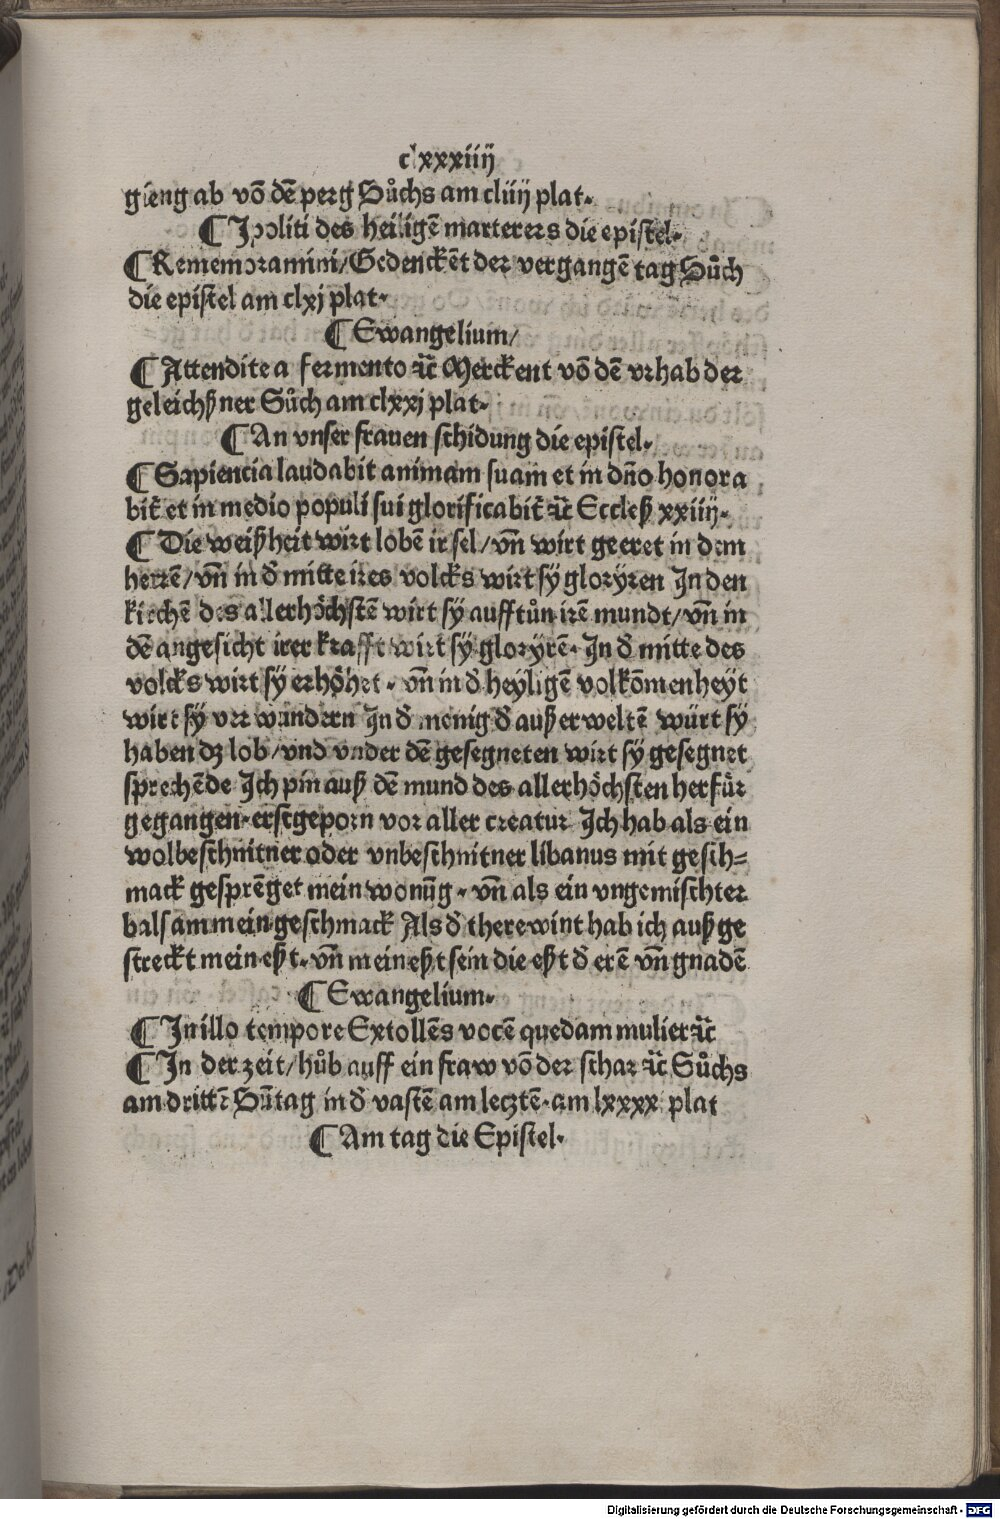 clxxxiiij
gieng ab võ dẽ perg Sůchs am cliiij plat.
¶ Ipoliti des heiligẽ marterers die epistel.
¶ Rememoramini/Gedenckẽt der vergangẽ tag Sůch
die epistel am clxj plat.
¶ Ewangelium/
¶ Attendite a fermento ⁊c̃ Merckent võ dẽ vrhab der
geleichßner Sůch am clxxj plat.
¶ An vnser frauen schidung die epistel.
¶ Sapiencia laudabit animam suam et in dño honora
bit̃ et in medio populi sui glorificabit̃ ⁊c̃ Eccleß xxiiij.
¶ Die weißheit wirt lobẽ ir sel/vñ wirt geeret in dem
herrẽ/vñ in d̕ mitte ires volcks wirt sÿ glorÿren In den
kirchẽ des allerhöchstẽ wirt sÿ aufftůn irẽ mundt/vñ in
dẽ angesicht irer krafft wirt sÿ glorÿrẽ. In d̕ mitte des
volcks wirt sÿ erhöhet. vñ in d̕ heÿligẽ volkõmenheÿt
wirt sÿ verwundern In d̕ menig d̕ außerweltẽ würt sÿ
haben dz lob/vnd vnder dẽ gesegneten wirt sÿ gesegnet
sprechẽde Ich pin auß dẽ mund des allerhöchsten herfür
gegangen. erstgeporn vor aller creatur Ich hab als ein
wolbeschnitner oder vnbeschnitner libanus mit gesch=
mack gesprẽget mein wonũg. vñ als ein vngemischter
balsam mein geschmack Als d̕ therewint hab ich außge
streckt mein eßt. vñ mein eßt sein die eßt d̕ erẽ vñ gnadẽ
¶ Ewangelium.
¶ In illo tempore Extollẽs vocẽ quedam mulier ⁊c̃
¶ In der zeit/hůb auff ein fraw võ der schar ⁊c̃ Sůchs
am drittẽ Sũtag in d̕ vastẽ am lecztẽ. am lxxxx plat
¶ Am tag die Epistel.
Digitalisierung gefördert durch die Deutsche Forschungsgemeinschaft - DFG